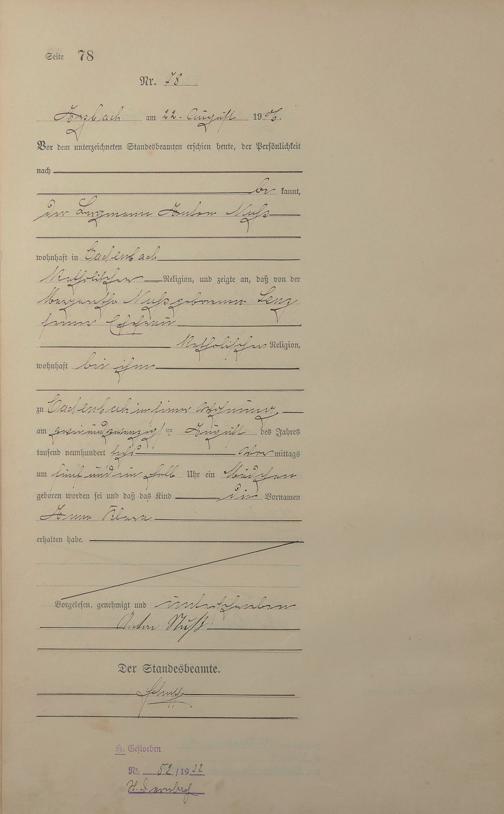 Seite 78
Nr. 78
am 22. August 1906.
Vor dem unterzeichneten Standesbeamten erschien heute, der Persönlichkeit
nach
be kannt,
der Bergmann Anton Muß
wohnhaft in Cachenbach
katholischer Religion, und zeigte an, daß von der
Muß geborenen
seiner Ehefrau
katholischer Religion,
wohnhaft bei ihm
zu Cachenbach in seiner Wohnung,
am zweiundzwanzigsten August des Jahres
tausend neunhundert sechs Vor mittags
um fünf und ein halb Uhr ein Mädchen
geboren worden sei und daß das Kind die Vornamen
Anna
erhalten habe.
Vorgelesen, genehmigt und unterschrieben
Anton Muß
Der Standesbeamte.
Gestorben
Nr. 52/1922